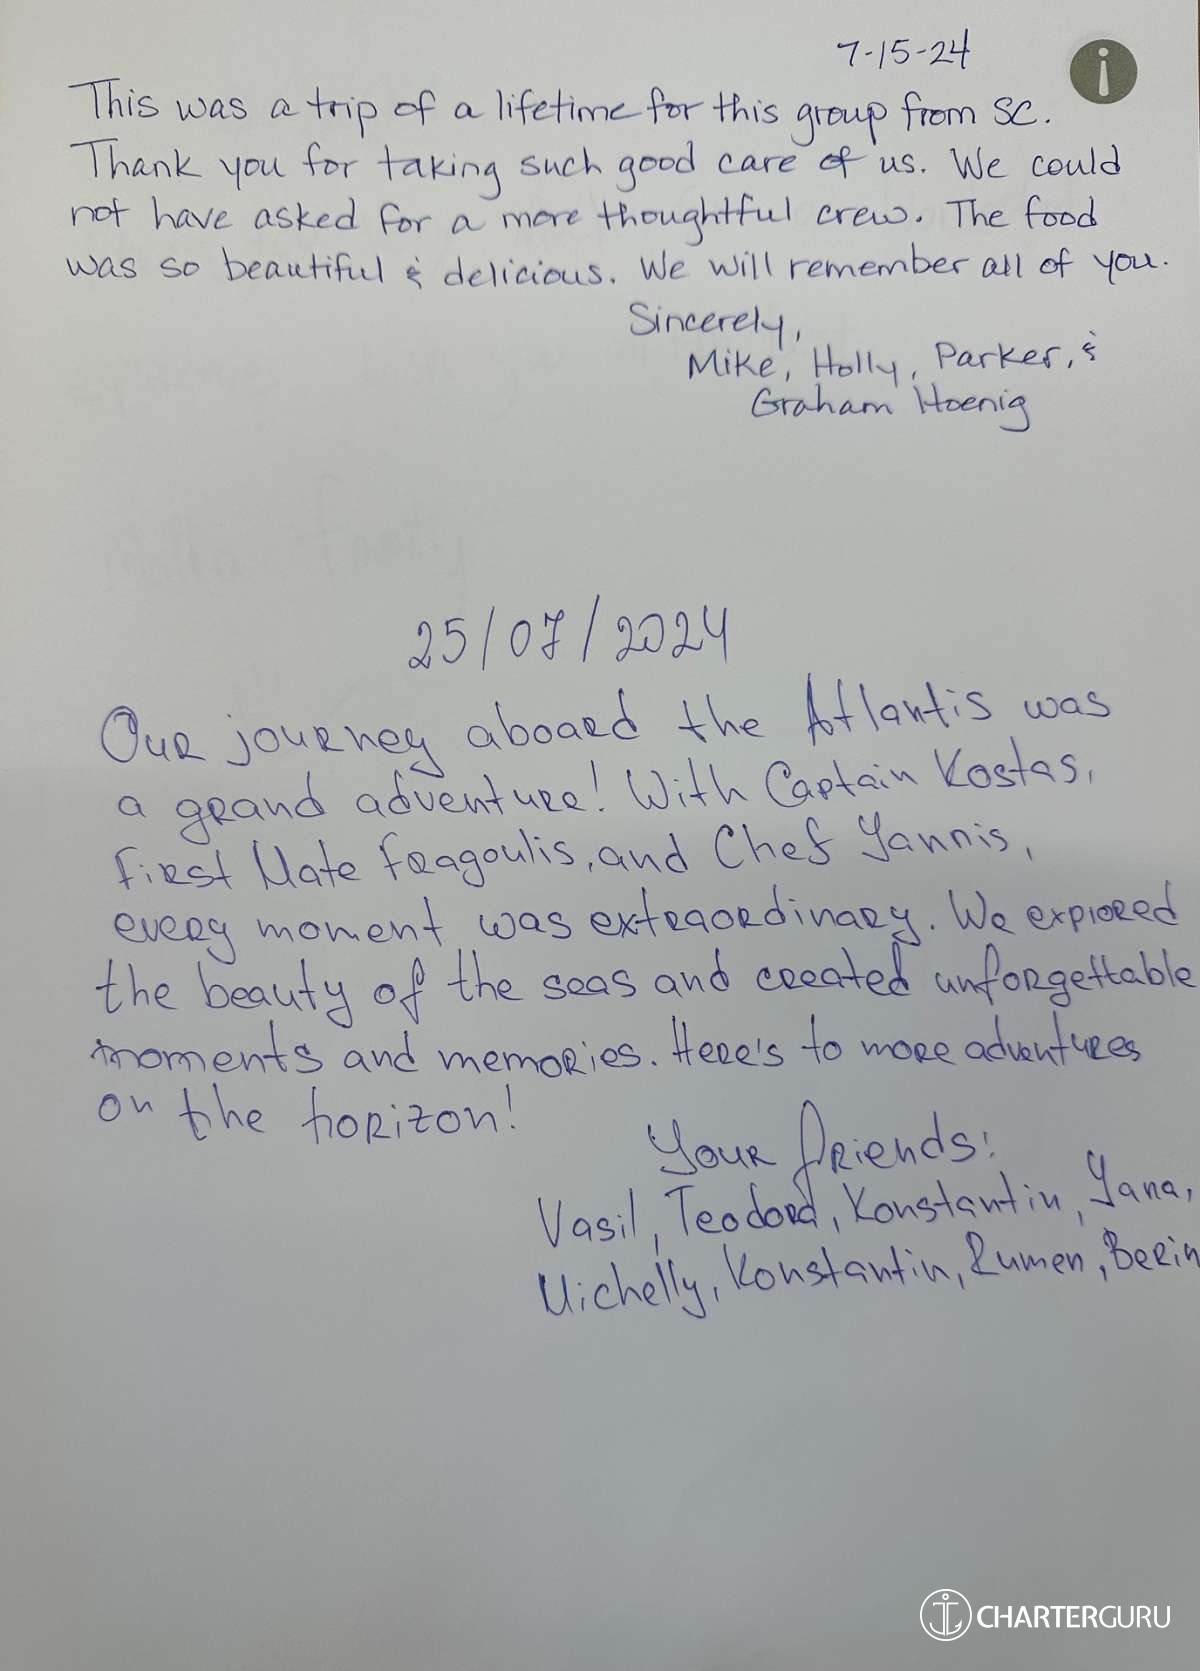 7-15-24
i
This was a trip of a lifetime for this group from SC.
Thank you for taking such good care of us. We could
not have asked for a more thoughtful crew. The food
was so beautiful & delicious. We will remember all of you.
Sincerely,
Mike, Holly, Parker, &
Graham Hoenig
25/07/2024
Our journey aboard the Atlantis was
a grand adventure! With Captain Kostas,
First Mate Fragoulis, and Chef Yannis,
every moment was extraordinary. We explored
the beauty of the seas and created unforgettable
moments and memories. Here's to more adventures
on the horizon!
Your friends:
Vasil, Teodora, Konstantin, Yana,
Michelly, Konstantin, Rumen, Berin
CHARTERGURU